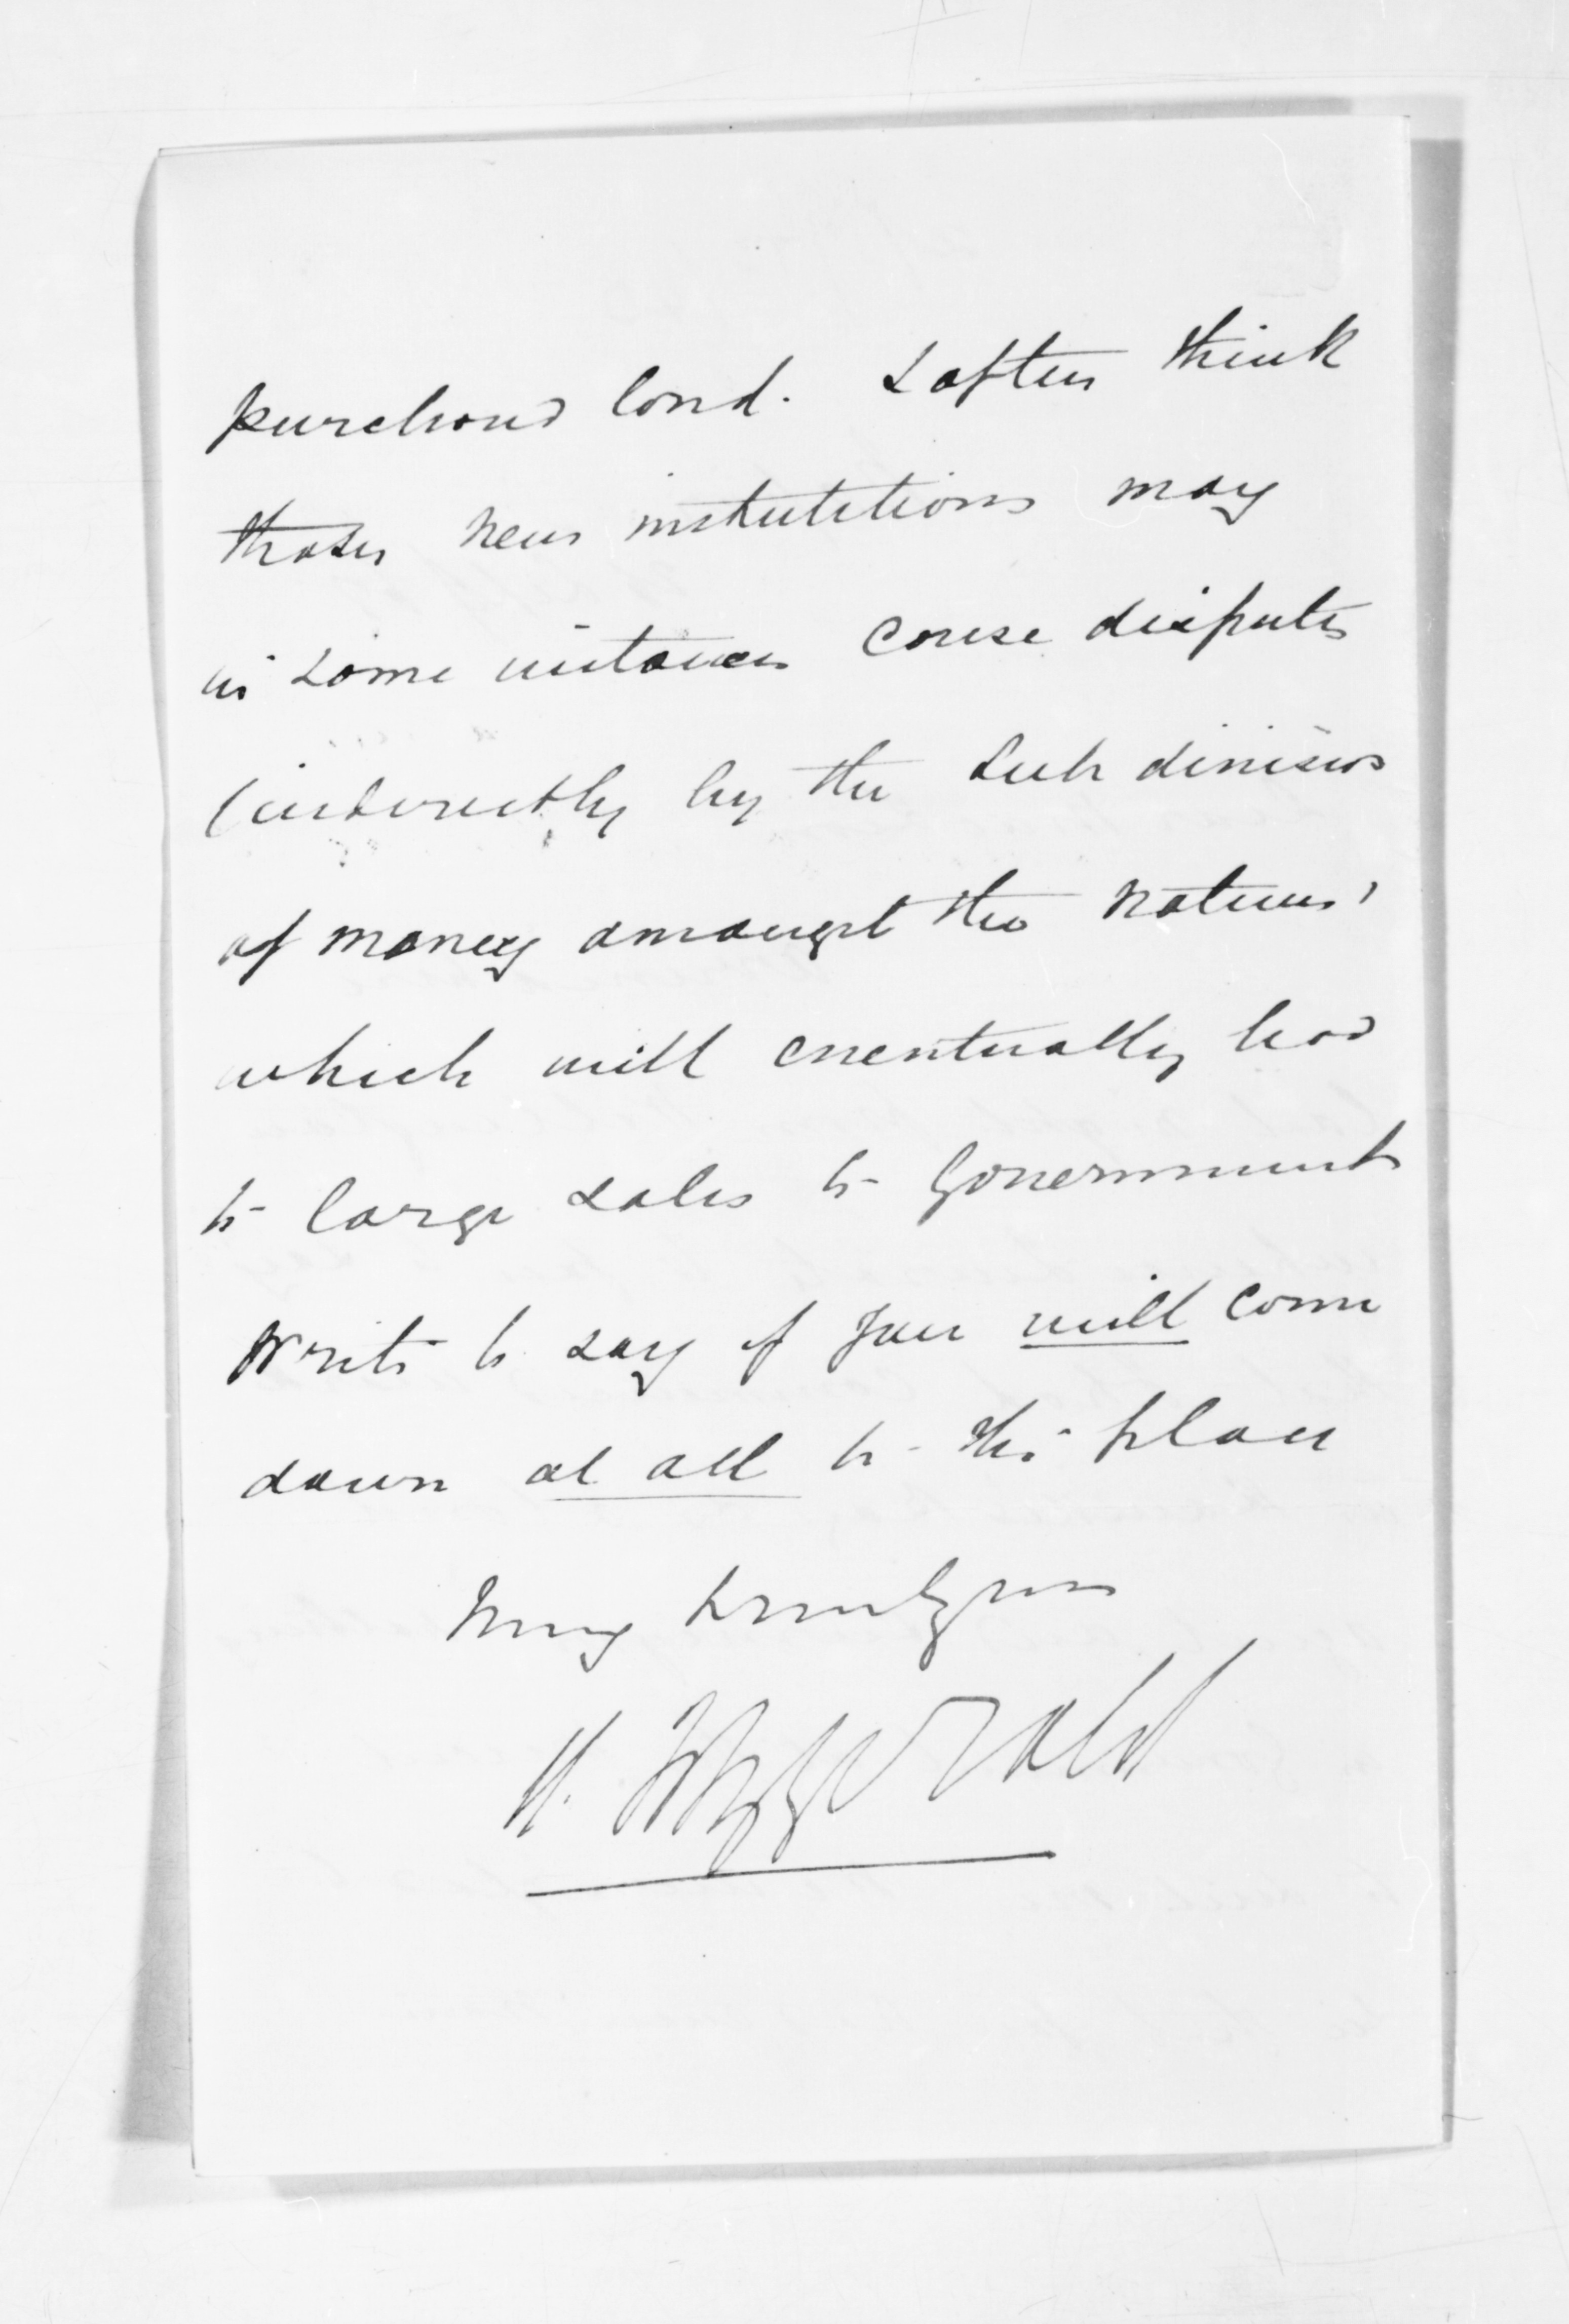 purchased land. I often think
these new institutions may
in some instances cause disputes
(indirectly by the sub division
of money amongst the natives'
which will eventually lead
to large sales to Government
Write to say if you will come
down at all to this place
Very
Fitzgerald